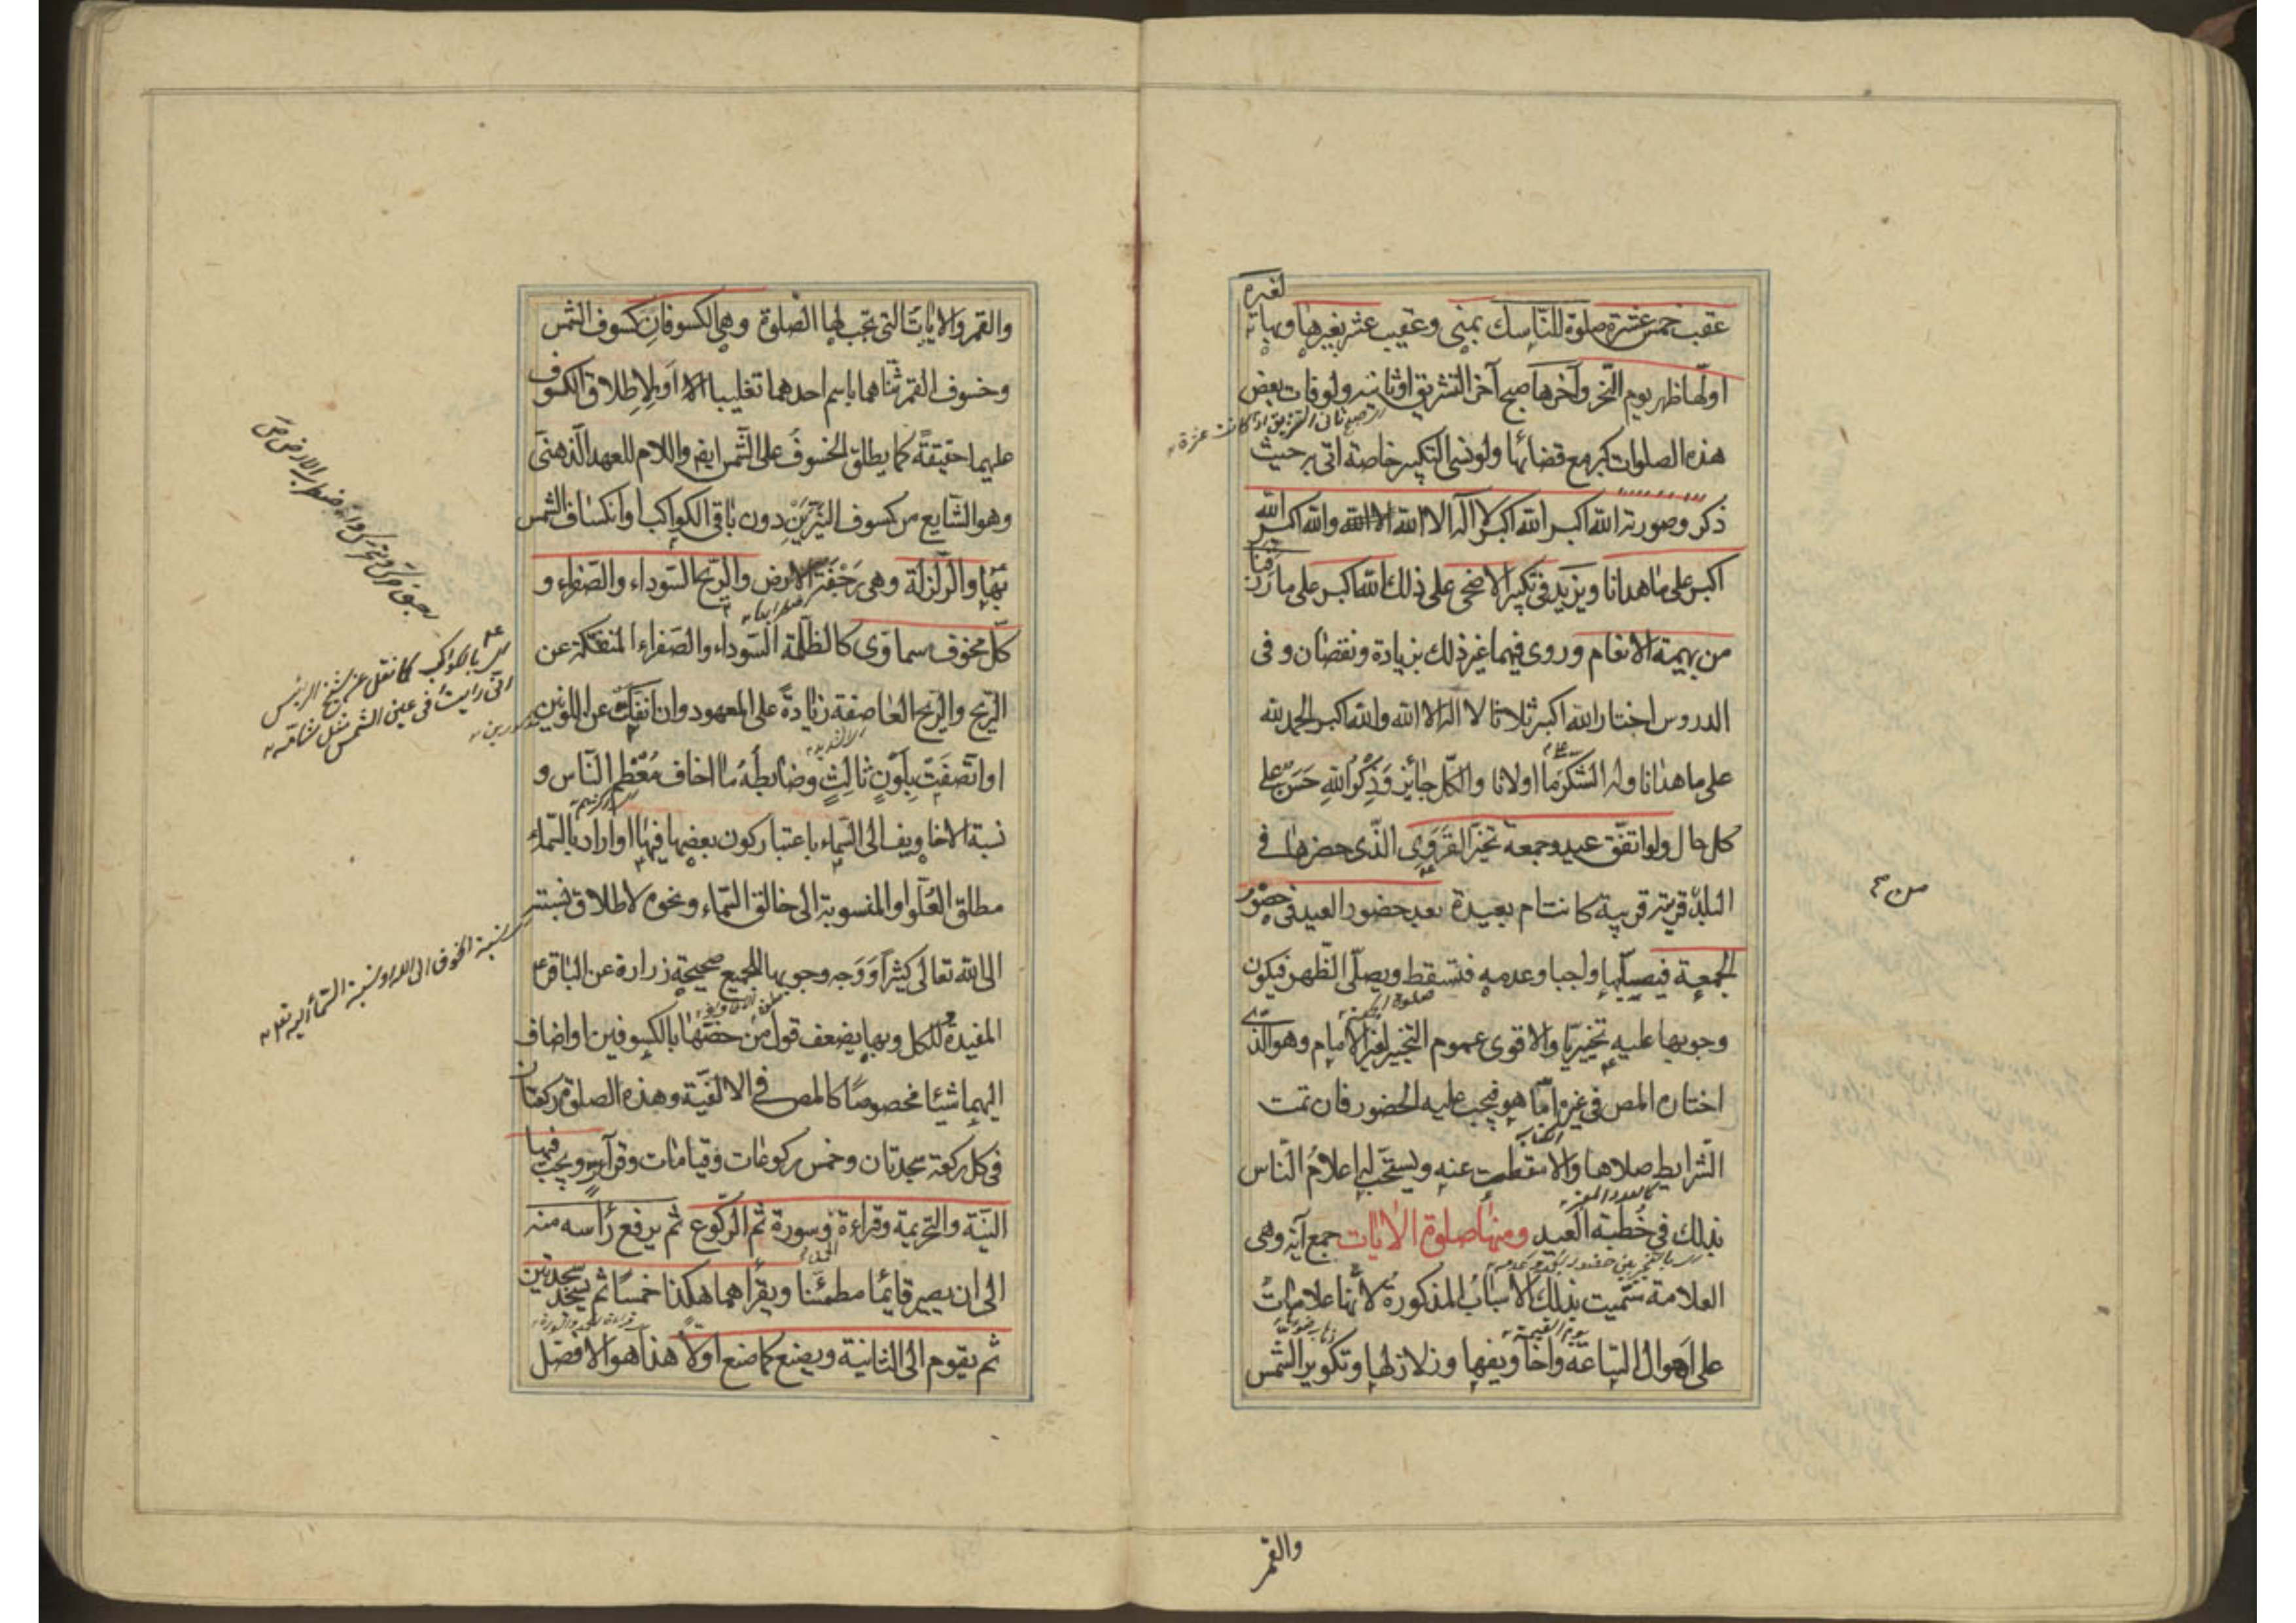 عقيب خمس عشرة صلوة للناسك بمنى وعقيب عشر بغيرها وبها لغيره
اولها ظهر يوم النحر وآخرها صبح آخر التشريق او ثانيه ولو فات بعض
هذه الصلوات كبر مع قضائها ولو نسى التكبير خاصة اتى به حيث
ذكر وصورته الله اكبر الله اكبر لا اله الا الله والله اكبر الله
اكبر على ما هدانا ويزيد فى تكبير الاضحى على ذلك الله اكبر على ما رزقنا
من بهيمة الانعام وروى فيهما غير ذلك بزيادة ونقصان وفى
الدروس اختار الله اكبر ثلاثا لا اله الا الله والله اكبر الحمد لله
على ما هدانا وله الشكر على ما اولانا والكل جائز وذكر الله حسن على
كل حال ولو اتفق عيد وجمعة تخير القروى الذى حضرها فى
البلد من قرية قريبة كانت ام بعيدة بعد حضور العيد فى حضور
الجمعة فيصليها واجبا وعدمه فتسقط ويصلى الظهر فيكون
وجوبها عليه تخييريا والاقوى عموم التخيير لغير الامام وهو الذى
اختاره المص فى غيره اما هو فيجب عليه الحضور فان تمت
الشرايط صلاها والا سقطت عنه ويستحب له اعلام الناس
بذلك فى خطبة العيد ومنها صلوة الايات جمع آية وهى
العلامة سميت بذلك الاسباب المذكورة لانها علامات
على اهوال الساعة واخاويفها وزلازلها وتكوير الشمس
والقمر
والقمر والايات التى تجب لها الصلوة وهى الكسوفان كسوف الشمس
وخسوف القمر ثناهما باسم احدهما تغليبا او لاطلاق الكسوف
عليهما حقيقة كما يطلق الخسوف على الشمس ايض واللام للعهد الذهنى
وهو الشايع من كسوف النيرين دون باقى الكواكب او انكساف الشمس
بها والزلزلة وهى رجفة الارض والريح السوداء والصفراء و
كل مخوف سماوى كالظلمة السوداء والصفراء المنفكة عن
الريح والريح العاصفة زيادة على المعهود وان انفكت عن اللونين
او اتصفت بلون ثالث وضابطه ما اخاف معظم الناس و
نسبة الاخاويف الى السماء باعتبار كون بعضها فيها او اراد بالسماء
مطلق العلو او المنسوبة الى خالق السماء ونحوه لاطلاق نسبته
الى الله تعالى كثيرا ووجه وجوبها للجميع صحيحة زرارة عن الباقر ع
المفيدة للكل وبها يضعف قول من خصها بالكسوفين او اضاف
اليهما شيئا مخصوصا كالمص فى الالفية وهذه الصلوة ركعتان
فى كل ركعة سجدتان وخمس ركوعات وقيامات وقرآت ويجب فيها
النية والتحريمة وقراءة الحمد وسورة ثم الركوع ثم يرفع رأسه منه
الى ان يصير قائما مطمئنا ويقرأهما هكذا خمسا ثم يسجد سجدتين
ثم يقوم الى الثانية ويصنع كما صنع اولا هذا هو الافضل
بالكواكب كما نقل عن شيخ الرئيس
انى رايت فى عين الشمس مثل شامة